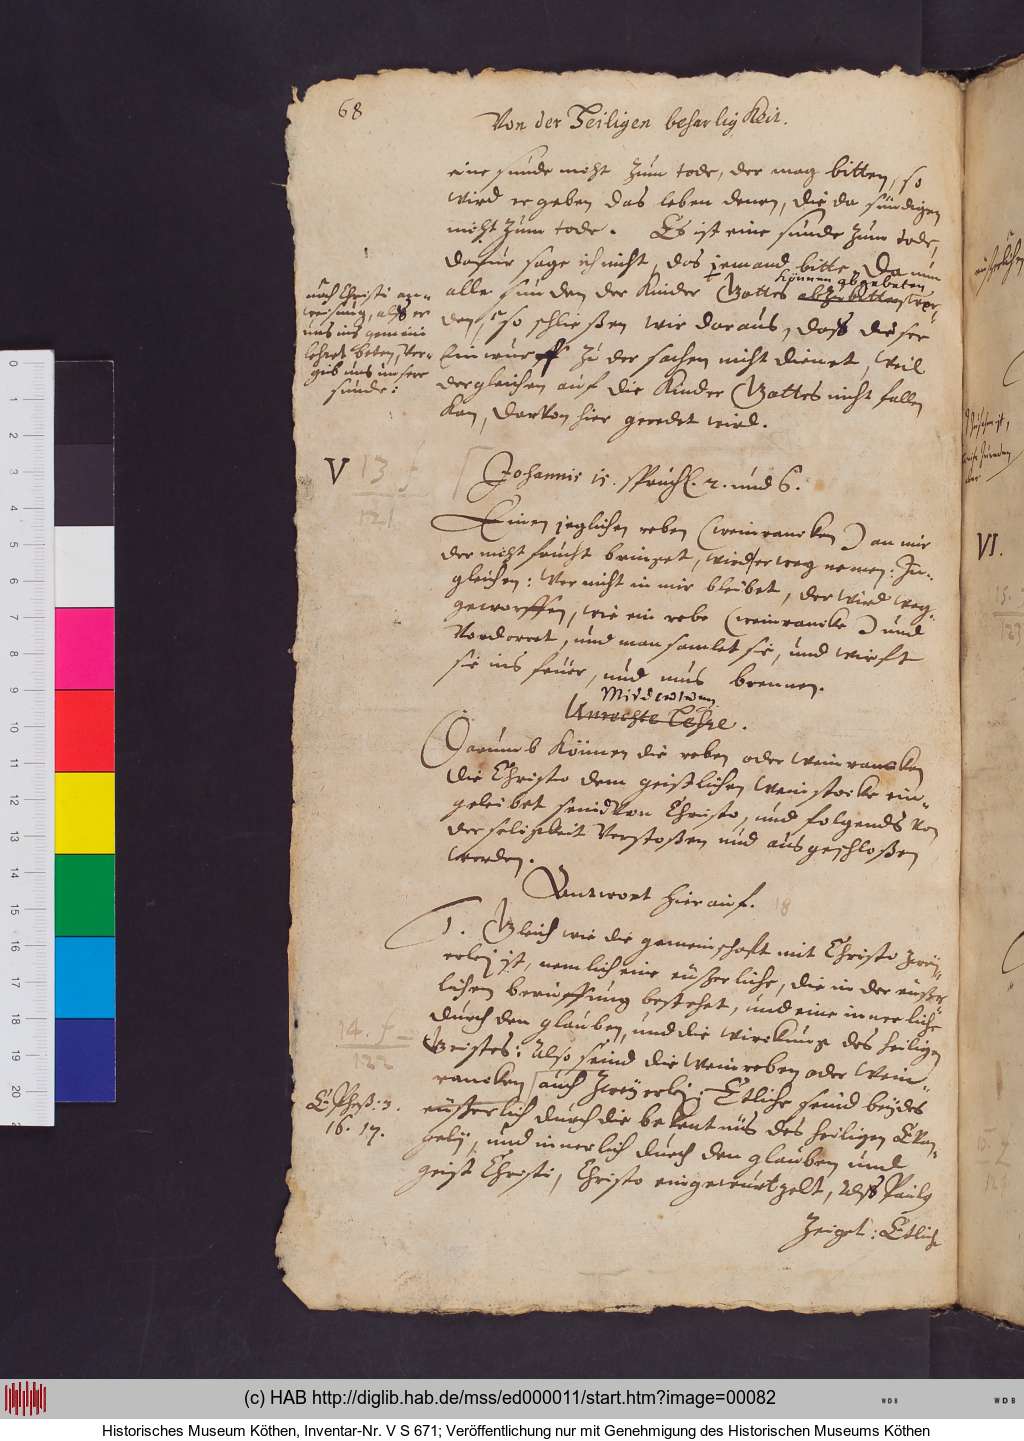 68
Von der Heiligen beharligkeit.
eine sunde nicht zum tode, der mag bitten, so
wird er geben das leben denen, die da sündigen
nicht zum tode. Es ist eine sunde zum tode,
dafur sage ich nicht, das jemand bitte. Da nun
können abgebeten
alle sunden der Kinder Gottes abzubitten wer-
den, so schließen wir daraus, daß dieser
Einwurff zu der sachen nicht dienet, weil
dergleichen auf die Kinder Gottes nicht fallen
kan, darvon hier geredet wird.
nach Christi an-
weisung, alß er
uns ins gemein
lehret beten, Ver-
gib uns unsere
sunde:
V
13
121
Johannis 15. spruch. 2. und 6.
Einen jeglichen reben (weinrancken) an mir
der nicht frucht bringet, wird er weg nemen: In-
gleichen: Wer nicht in mir bleibet, der wird weg-
geworffen, wie ein rebe (weinrancke) und
verdorret, und man samlet sie, und wirft
sie ins feuer, und mus brennen.
Unrechte Lehre.
Darumb können die reben oder weinrancken
die Christo dem geistlichen weinstocke ein-
geleibet seind von Christo, und folgends von
der seligkeit verstoßen und ausgeschloßen
werden.
Antwort hierauf.
18
1. Gleich wie die gemeinschaft mit Christo zwey-
erley ist, nemlich eine eüßerliche, die in der eüßer-
lichen beruffung bestehet, und eine innerliche
durch den glauben, und die wirckung des heiligen
Geistes: Also seind die weinreben oder wein-
rancken auch zweyerley. Etliche seind beydes
eüßerlich durch die bekentnüs des heiligen Evan-
gelij, und innerlich durch den glauben und
geist Christi, Christo eingewurtzelt, Alß Paulus
14.
122
Ephes: 3.
16. 17.
zeiget: Etliche
VI.
15.
123
0
1
2
3
4
5
6
7
8
9
10
11
12
13
14
15
16
17
18
19
20
(c) HAB http://diglib.hab.de/mss/ed000011/start.htm?image=00082
WDB
WDB
Historisches Museum Köthen, Inventar-Nr. V S 671; Veröffentlichung nur mit Genehmigung des Historischen Museums Köthen